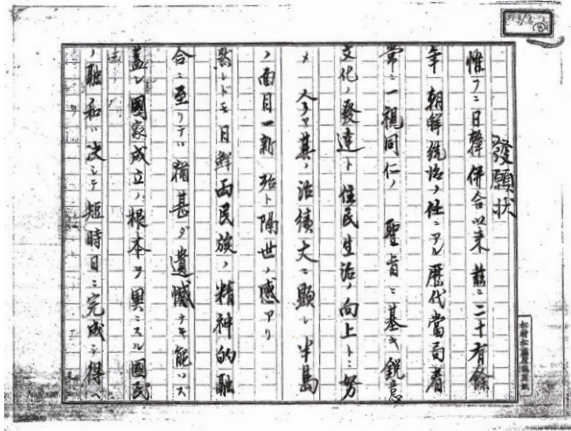 發願狀
惟フニ日韓併合以来茲ニ二十有餘
年朝鮮統治ノ任ニアル歴代當局者
常ニ一視同仁ノ聖旨ニ基キ鋭意
文化ノ發達ト住民生活ノ向上トニ努
メ今ヤ其ノ治績大ニ顯レ半島
ノ面目一新殆ト隔世ノ感アリ
然レトモ日鮮両民族ノ精神的融
合ニ至リテハ猶甚タ遺憾ナキ能ハス
蓋シ國家成立ノ根本ヲ異ニスル國民
ノ融和ハ決シテ短時日ニ完成シ得ヘ